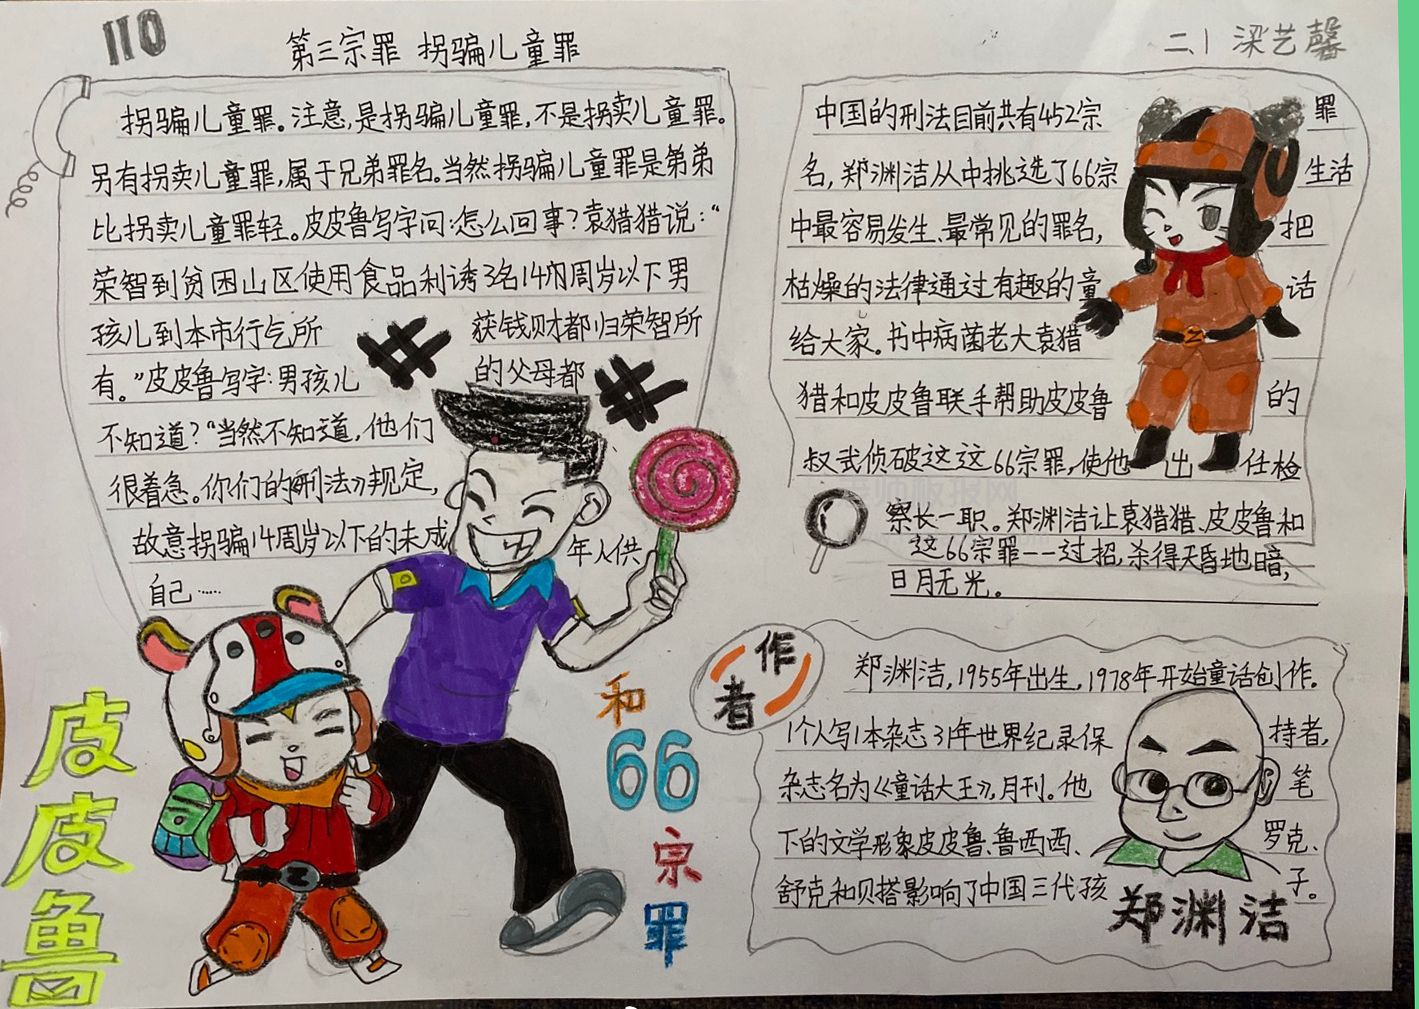 110
第三宗罪 拐骗儿童罪
拐骗儿童罪。注意,是拐骗儿童罪,不是拐卖儿童罪。
另有拐卖儿童罪,属于兄弟罪名。当然拐骗儿童罪是弟弟
比拐卖儿童罪轻。皮皮鲁写字问:怎么回事?袁猎猎说:“
荣智到贫困山区使用食品利诱3名14周岁以下男
孩儿到本市行乞所获钱财都归荣智所
有。”皮皮鲁写字:男孩儿的父母都
不知道?“当然不知道,他们
很着急。你们的《刑法》规定,
故意拐骗14周岁以下的未成年人供
自己……
皮皮鲁
和
66
宗
罪
二、1 梁艺馨
中国的刑法目前共有452宗罪
名,郑渊洁从中挑选了66宗生活
中最容易发生、最常见的罪名,把
枯燥的法律通过有趣的童话
给大家。书中病菌老大袁猎
猎和皮皮鲁联手帮助皮皮鲁的
叔武侦破这这66宗罪,使他出任检
察长一职。郑渊洁让袁猎猎、皮皮鲁和
这66宗罪一一过招,杀得天昏地暗,
日月无光。
作者
郑渊洁,1955年出生,1978年开始童话创作。
1个人写1本杂志31年世界纪录保持者,
杂志名为《童话大王》,月刊。他笔
下的文学形象皮皮鲁、鲁西西、罗克、
舒克和贝搭影响了中国三代孩子。
郑渊洁